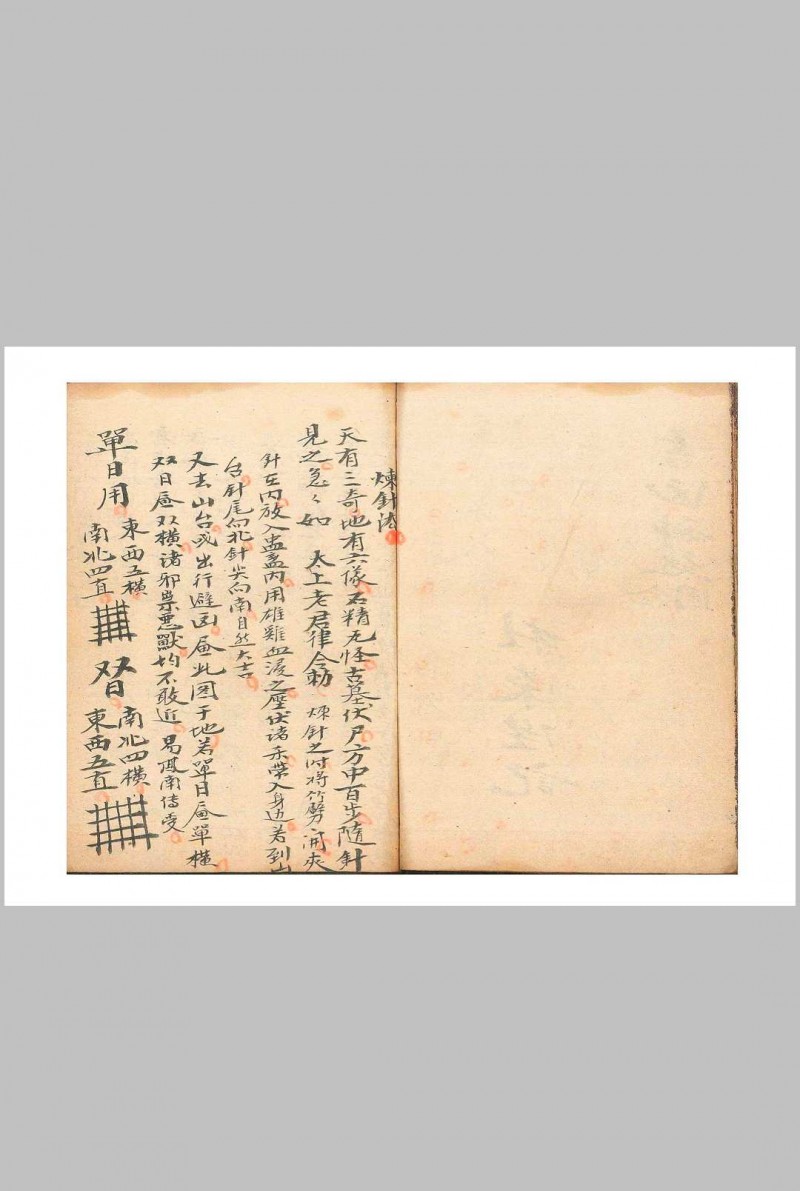 煉針法
天有三奇地有六儀石精无怪古墓伏尸方中百步隨針
見之急々如 太上老君律令勅 煉針之时将竹劈開夾
針在内放入盅盂内用雄雞血浸之壓伏诸煞帶入身边若到山
針尾向北針尖向南自然大吉
又去山台或出行避凶画此图于地若單日画單横
双日画双横諸邪祟悪獸均不敢近 易鳳南傳受
單日用 東西五横
南北四直
双日 南北四横
東西五直